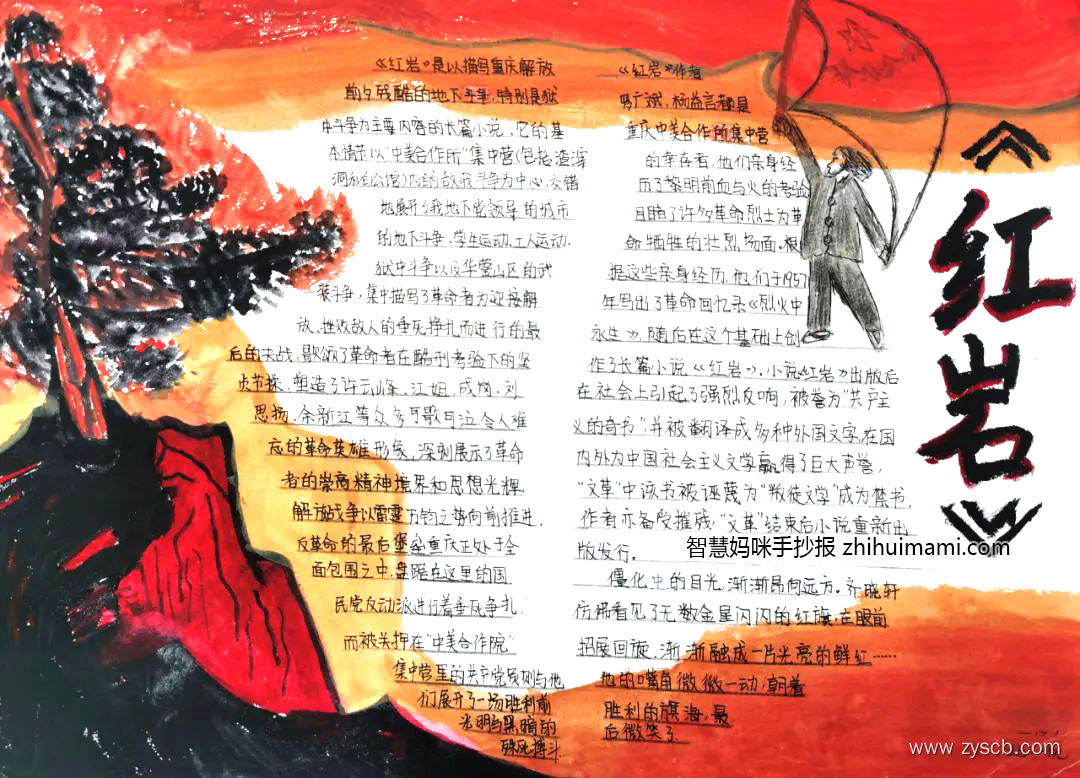 《红岩》是以描写重庆解放
前夕残酷的地下斗争，特别是狱
中斗争为主要内容的长篇小说，它的基
本情节以"中美合作所"集中营(包括渣滓
洞和白公馆)内的敌我斗争为中心，交错
地展开了我地下党领导的城市
的地下斗争，学生运动，工人运动，
狱中斗争以及华蓥山区的武
装斗争，集中描写了革命者为迎接解
放，挫败敌人的垂死挣扎而进行的最
后的决战，歌颂了革命者在酷刑考验下的坚
贞节操，塑造了许云峰，江姐，成岗，刘
思扬，余新江等众多可歌可泣令人难
忘的革命英雄形象，深刻展示了革命
者的崇高精神境界和思想光辉，
解放战争以雷霆万钧之势向前推进，
反革命的最后堡垒重庆正处于全
面包围之中，盘踞在这里的国
民党反动派进行着垂死挣扎，
而被关押在"中美合作院"
集中营里的共产党员则与他
们展开了一场胜利前
光明与黑暗的
殊死搏斗
《红岩》作者
罗广斌，杨益言都是
重庆中美合作所集中营
的幸存者，他们亲身经
历了黎明前血与火的考验
目睹了许多革命烈士为革
命牺牲的壮烈场面，根
据这些亲身经历，他们于1957
年写出了革命回忆录《烈火中
永生》，随后在这个基础上创
作了长篇小说《红岩》，小说《红岩》出版后
在社会上引起了强烈反响，被誉为"共产主
义的奇书"并被翻译成多种外国文字，在国
内外为中国社会主义文学赢得了巨大声誉，
"文革"中该书被诬蔑为"叛徒文学"成为禁书，
作者亦备受摧残，"文革"结束后小说重新出
版发行。
僵化中的目光，渐渐昂向远方。齐晓轩
仿佛看见了无数金星闪闪的红旗，在眼前
招展回旋，渐渐融成一片光亮的鲜红……
他的嘴角微微一动，朝着
胜利的旗海，最
后微笑了.
《红岩》
智慧妈咪手抄报 zhihuimami.com
www.zyscb.com